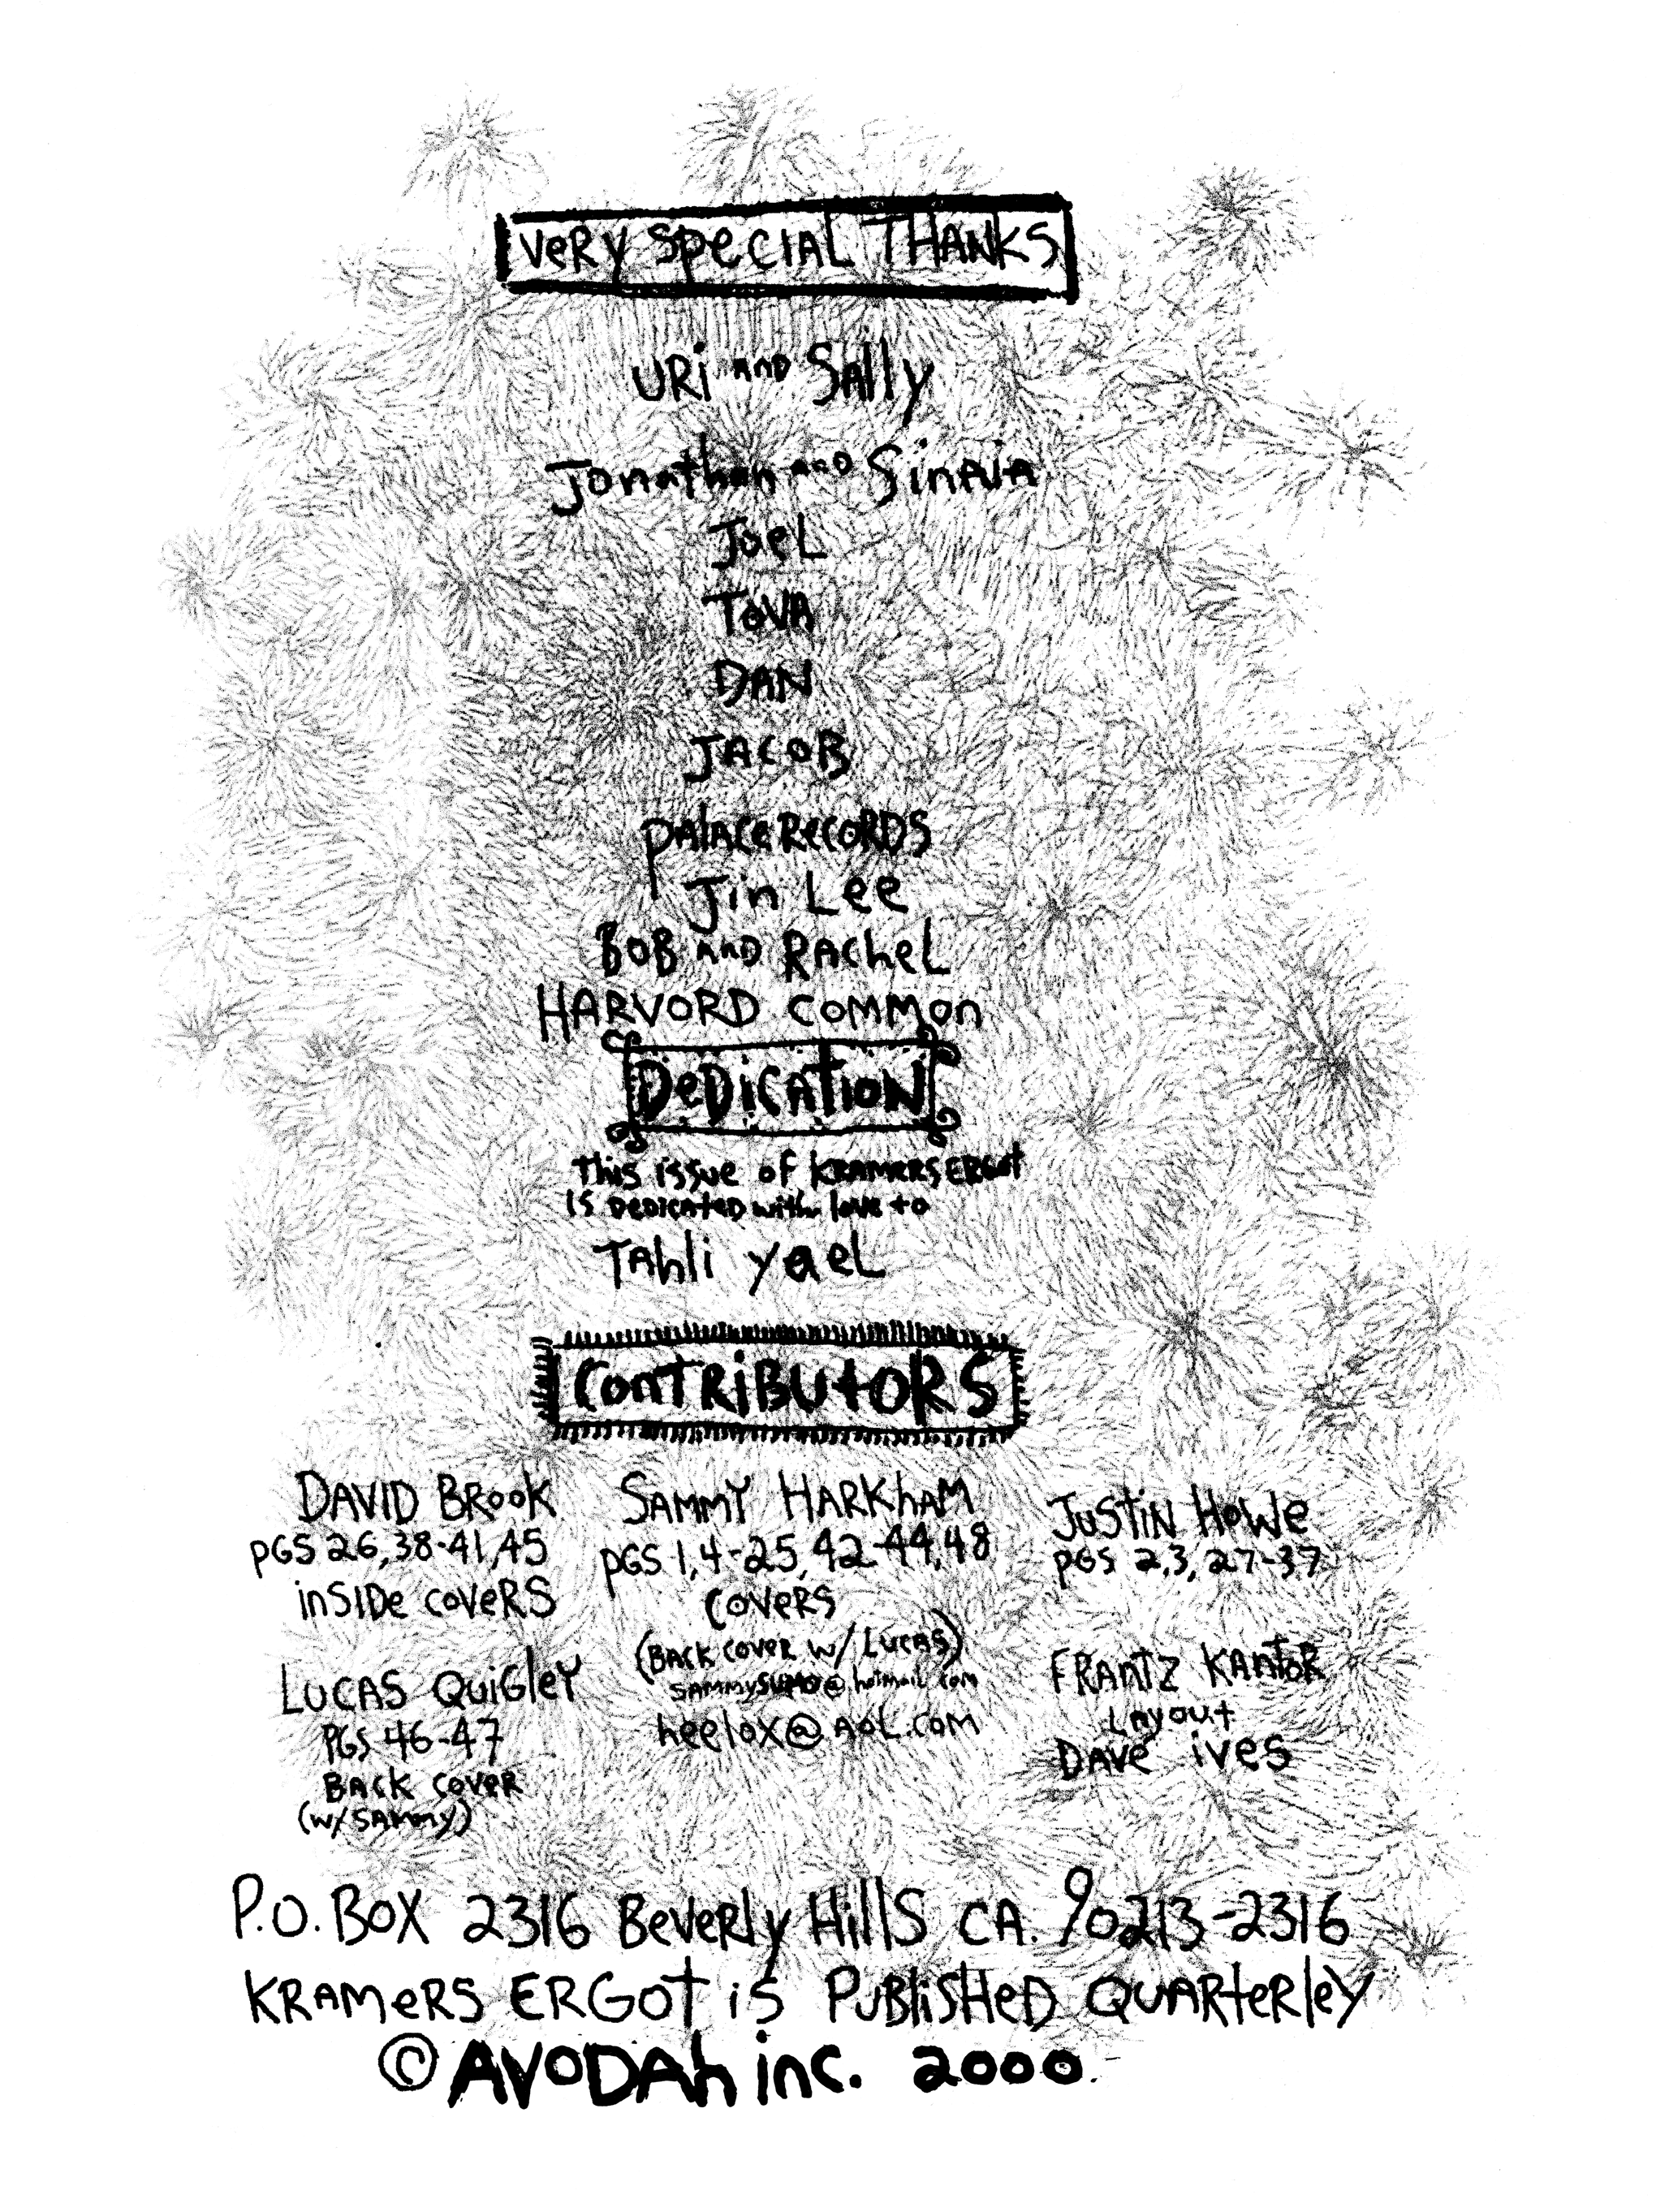 VeRY SPeCIAL THANKS
URi AnD SAlly
Jonathan AnD SinAiA
JoeL
ToVA
DAN
JACOB
PALACe ReCORDS
Jin Lee
BOB AnD RACheL
HARVORD COMMon
DeDiCATION
This issue of KRAMERS ERGot
is DeDiCATeD with love to
TAhli yaeL
ContRiButORS
DAVID BRooK
PGS 26, 38-41, 45
inSIDe CoVeRS
SAMMY HARKhAM
PGS 1, 4-25, 42-44, 48
COVeRS
(BACK COVeR w/ LuCAS)
SAMMYSUMO@hotmail.com
heelox@AOL.COM
JuStiN HoWe
PGS 2,3, 27-37
LUCAS QuiGleY
PGS 46-47
BACK COVeR
(w/ SAmmy)
FRAntZ KAntoR
Layout
DAVe ives
P.O. BOX 2316 BeVeRly HillS CA. 90213-2316
KRAMeRS ERGOt iS PuBliSHeD QUARteRleY
© AVODAh inc. 2000.